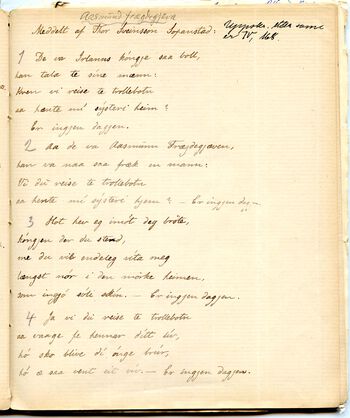 Aasmund frægdegjeva
Meddelt af Thor Sveinsson Sopanstad:
Uppskr. Ikkje same
er IV, 168.
1 De va Irlanns kóngje saa boll,
han tala te sine mænn:
Hven vi reise te trollebotn
aa hente mi systeri heim?
Er ingjen daggjen.
2 Aa de va Aasmunn Frægdegjæven,
han va naa saa fræk en mann:
Vi du reise te trollebotn
aa hente mi systeri hjem? – Er ingjen dag –
3 Hot hev eg imót deg bróte,
kóngjen der du stend,
me du vil endeleg sita meg
længst nór i den mörke heimen,
som ingjó sóle skin. – Er ingjen daggjen.
4 Ja vi du reise te trollebotn
aa vaage fe hennar ditt liv,
hó sko blive di ónge brúr,
hó æ saa vent eit viv. – Er ingjen daggjen.